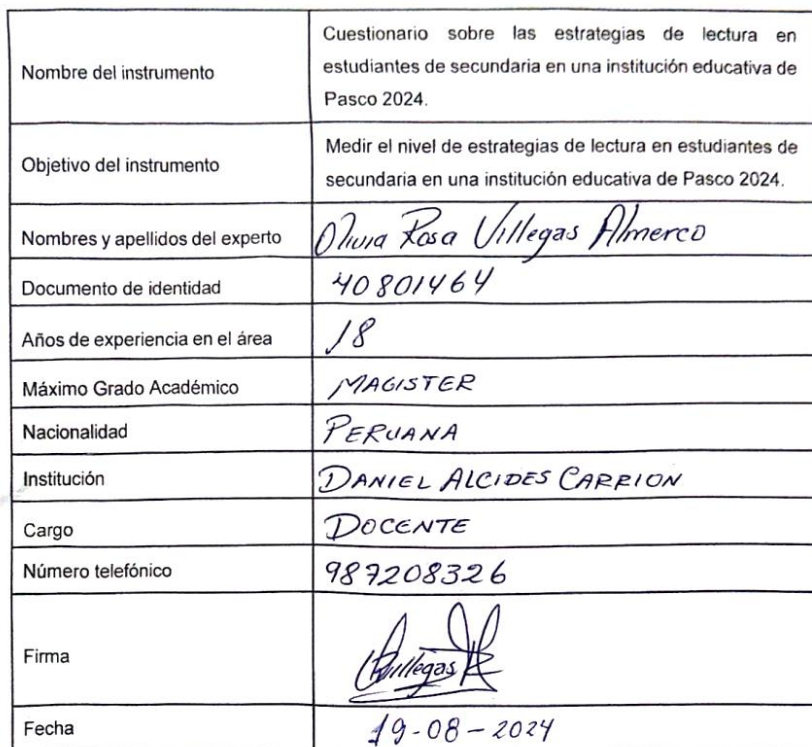 Nombre del instrumento
Cuestionario sobre las estrategias de lectura en
estudiantes de secundaria en una institución educativa de
Pasco 2024.
Objetivo del instrumento
Medir el nivel de estrategias de lectura en estudiantes de
secundaria en una institución educativa de Pasco 2024.
Nombres y apellidos del experto
Olivia Rosa Villegas Almerco
Documento de identidad
40801464
Años de experiencia en el área
18
Máximo Grado Académico
MAGISTER
Nacionalidad
PERUANA
Institución
DANIEL ALCIDES CARRION
Cargo
DOCENTE
Número telefónico
987208326
Firma
Fecha
19-08-2024